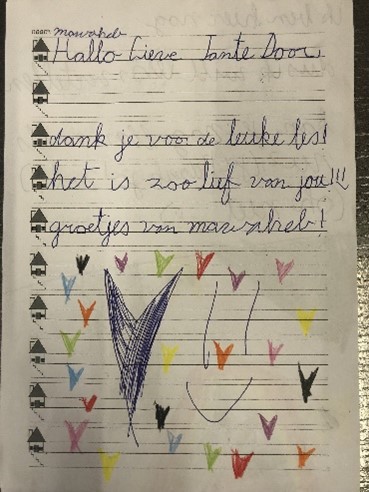 naam mawaheb
Hallo Lieve Tante Door
dank je voor de leuke les!
het is zoo lief van jou!!!
groetjes van mawaheb!